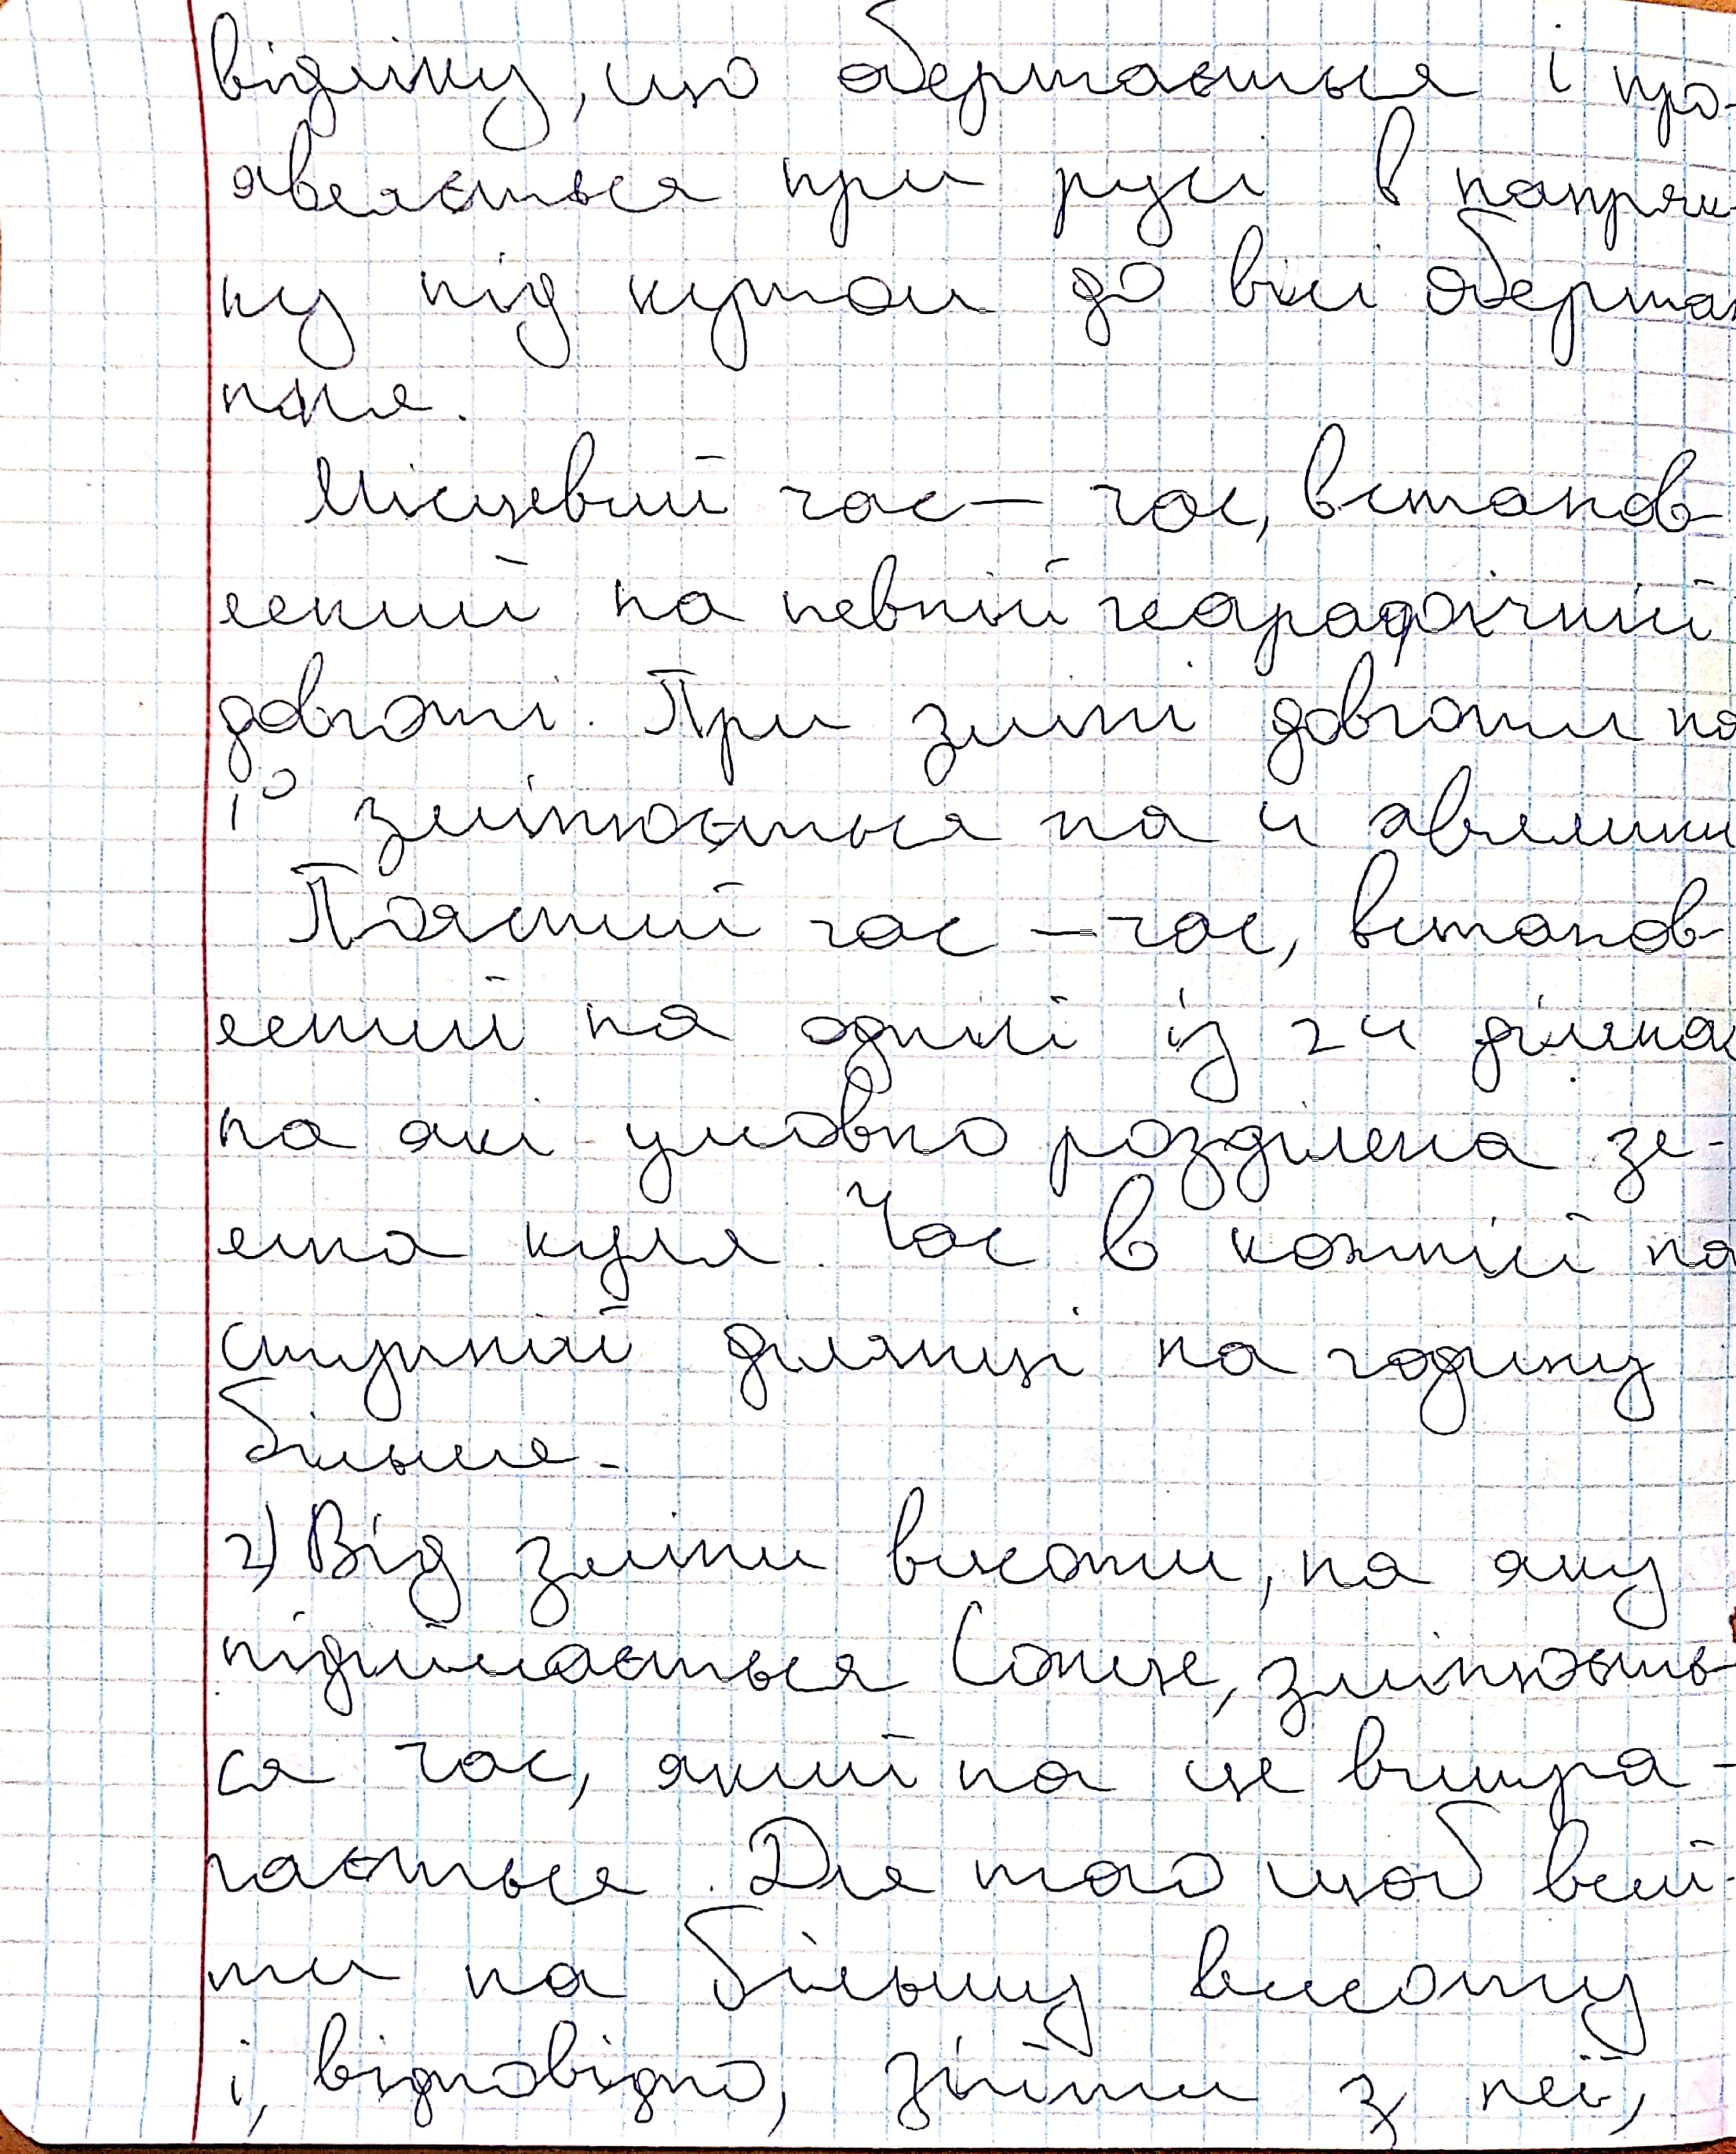 відліку, що обертається і про-
являється при русі в напрям-
ку під кутом до вісі обертан
ння.
Місцевий час – час, встанов-
лений на певній географічній
довготі. При зміні довготи на
1° змінюється на 4 хвилини
Поясний час – час, встанов-
лений на одній із 24 ділянок
на які умовно розділена зе-
мна куля. Час в кожній на
ступній ділянці на годину
більше.
2) Від зміни висоти, на яку
підіймається Сонце, змінюєть-
ся час, який на це витра-
чається. Для того щоб всій-
ти на більшу висоту
і, відповідно, зійти з неї,